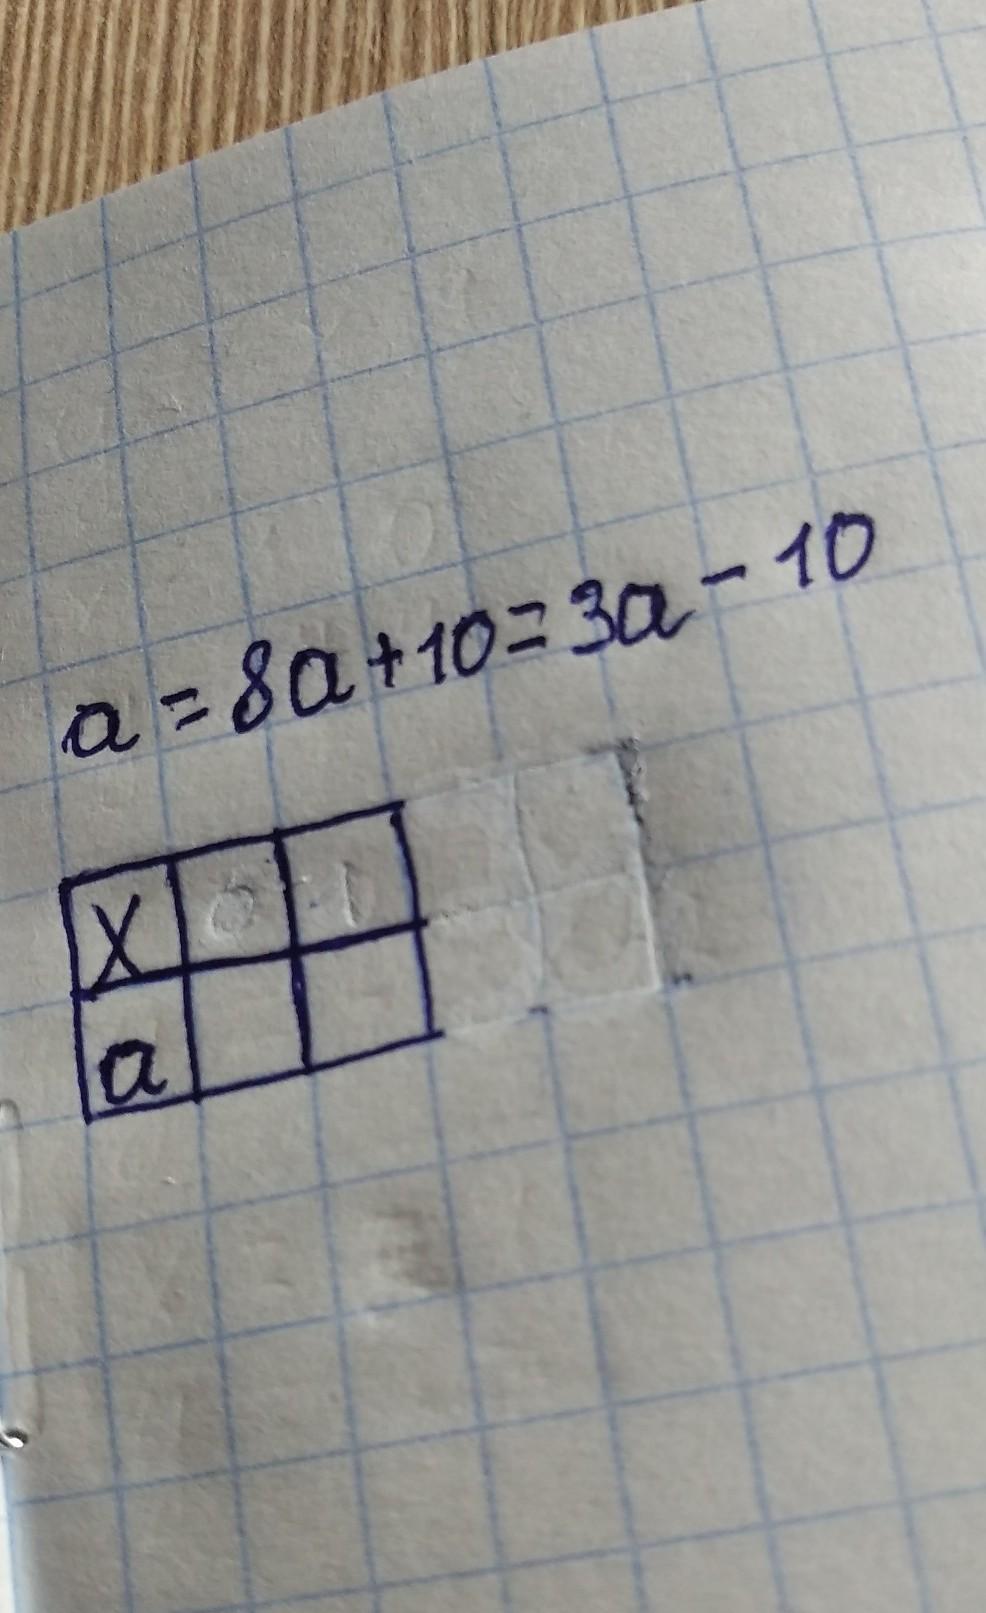 a = 8a + 10 = 3a - 10
X 0 1
a